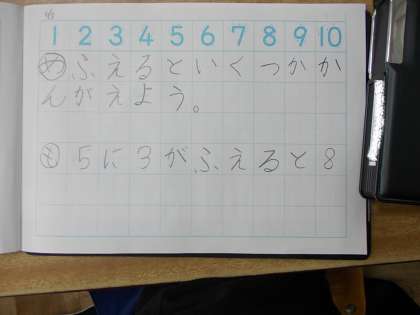 1 2 3 4 5 6 7 8 9 10
めふえるといくつかか
んがえよう。
も5に3がふえると8